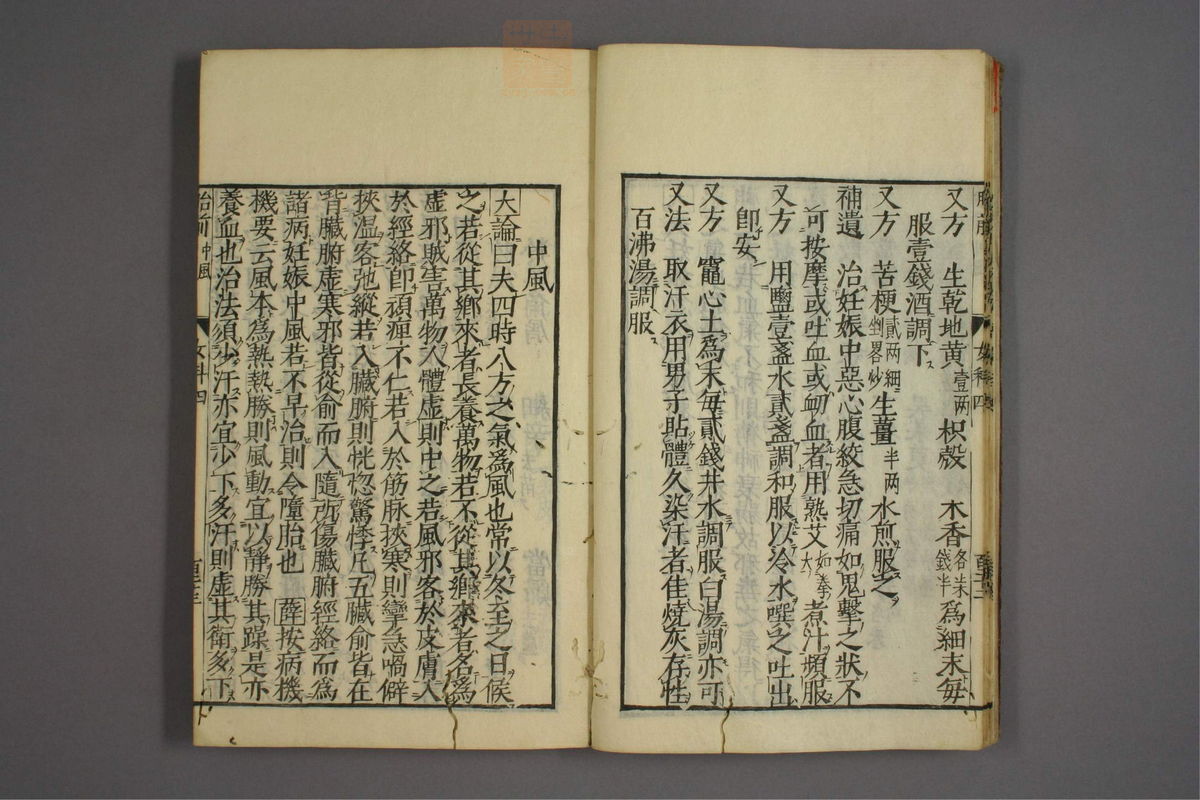 又方　生乾地黄壹两　枳殻　木香各半錢半　爲細末毎
服壹錢酒調下
又方　苦梗貳两細剉畧炒　生薑半两　水煎服之
補遺　治妊娠中惡心腹絞急切痛如鬼擊之狀不
可按摩或吐血或衂血者用熟艾如拳大　煮汁頻服
又方　用鹽壹盞水貳盞調和服以冷水噀之吐出
卽安
又方　竈心土爲末毎貳錢井水調服白湯調亦可
又法　取汗衣用男子貼體久染汗者佳燒灰存性
百沸湯調服
中風
大論曰夫四時八方之氣爲風也常以冬至之日候
之若從其鄉來者長養萬物若不從其鄉來者名爲
虚邪賊害萬物人體虚則中之若風邪客於皮膚入
於經絡卽頑痺不仁若入於筋脉挾寒則攣急喎僻
挾温客弛縱若入臟腑則恍惚驚悸凢五臟俞皆在
背臟腑虚寒邪皆從俞而入隨所傷臟腑經絡而爲
諸病妊娠中風若不早治則令墮胎也　薛按病機
機要云風本爲熱熱勝則風動宜以靜勝其躁是亦
養血也治法須少汗亦宜少下多汗則虚其衛多下
胎前　中風　女科四